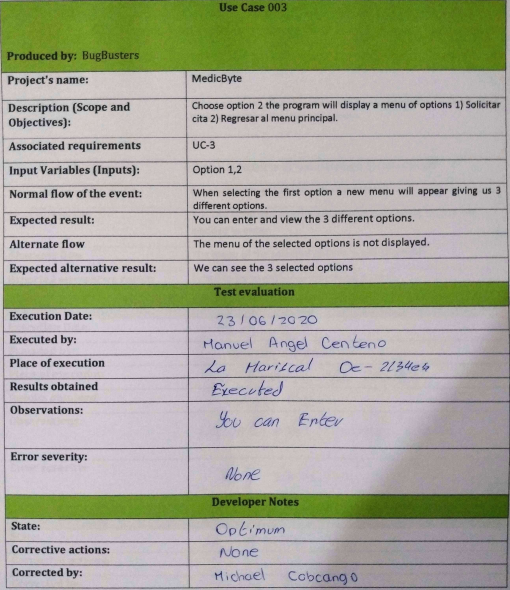 Use Case 003
Produced by: BugBusters
Project's name: MedicByte
Description (Scope and Objectives): Choose option 2 the program will display a menu of options 1) Solicitar
cita 2) Regresar al menu principal.
Associated requirements UC-3
Input Variables (Inputs): Option 1,2
Normal flow of the event: When selecting the first option a new menu will appear giving us 3
different options.
Expected result: You can enter and view the 3 different options.
Alternate flow The menu of the selected options is not displayed.
Expected alternative result: We can see the 3 selected options
Test evaluation
Execution Date: 23/06/2020
Executed by: Manuel Angel Centeno
Place of execution La Mariscal Oe-
Results obtained Executed
Observations: You can Enter
Error severity: None
Developer Notes
State: Optimum
Corrective actions: None
Corrected by: Michael Cobcango